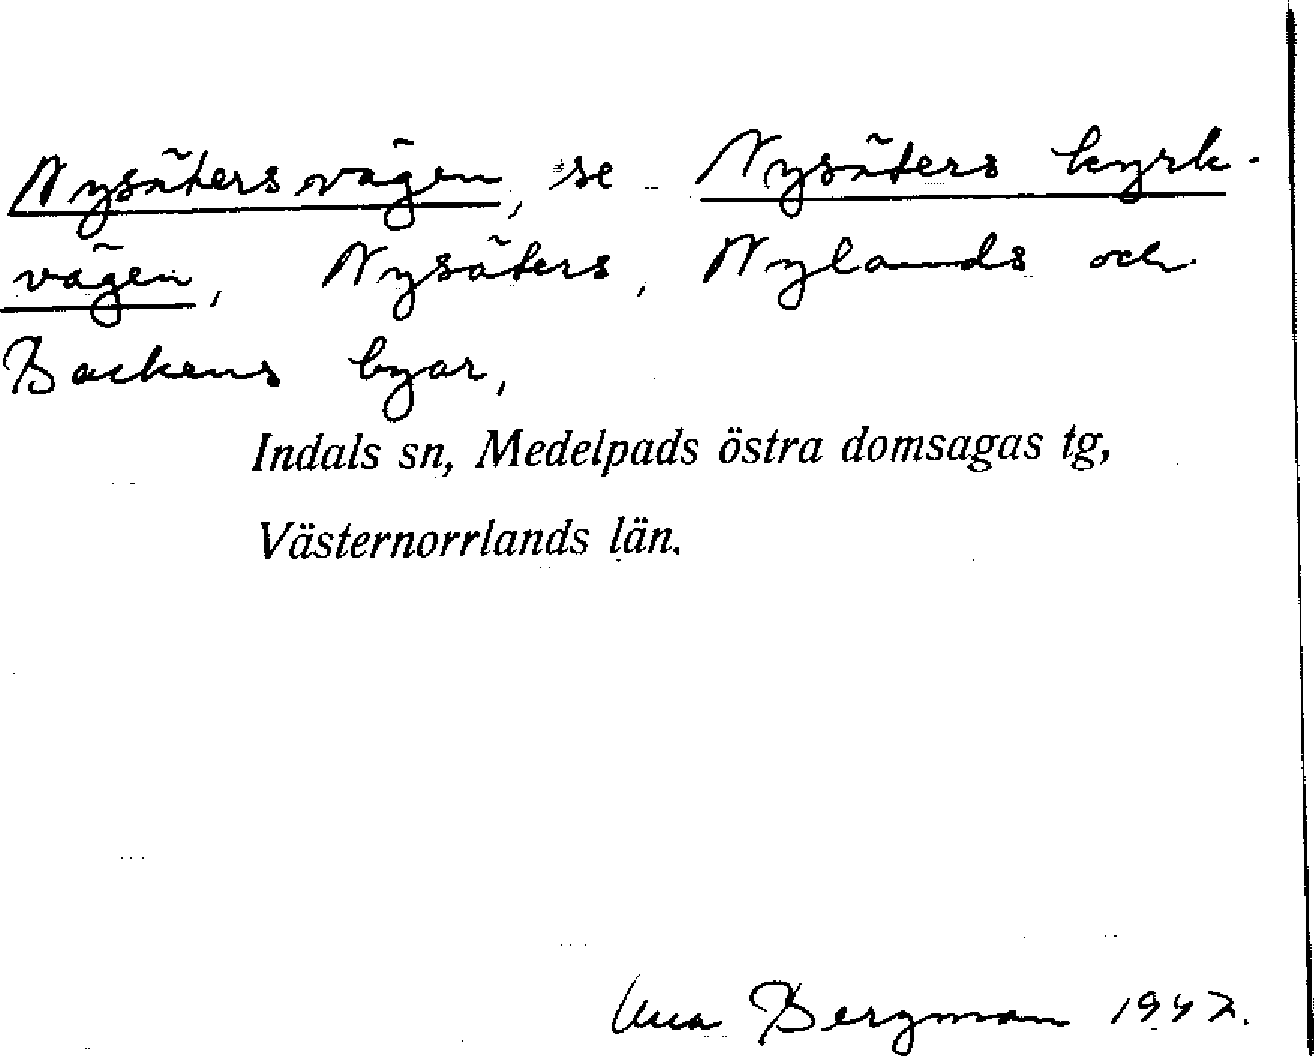 Nysätersvägen, se Nysäters kyrk-
vägen, Nysäters, Nylands och
Backens byar,
Indals sn, Medelpads östra domsagas tg,
Västernorrlands län.
Bergman 1942.